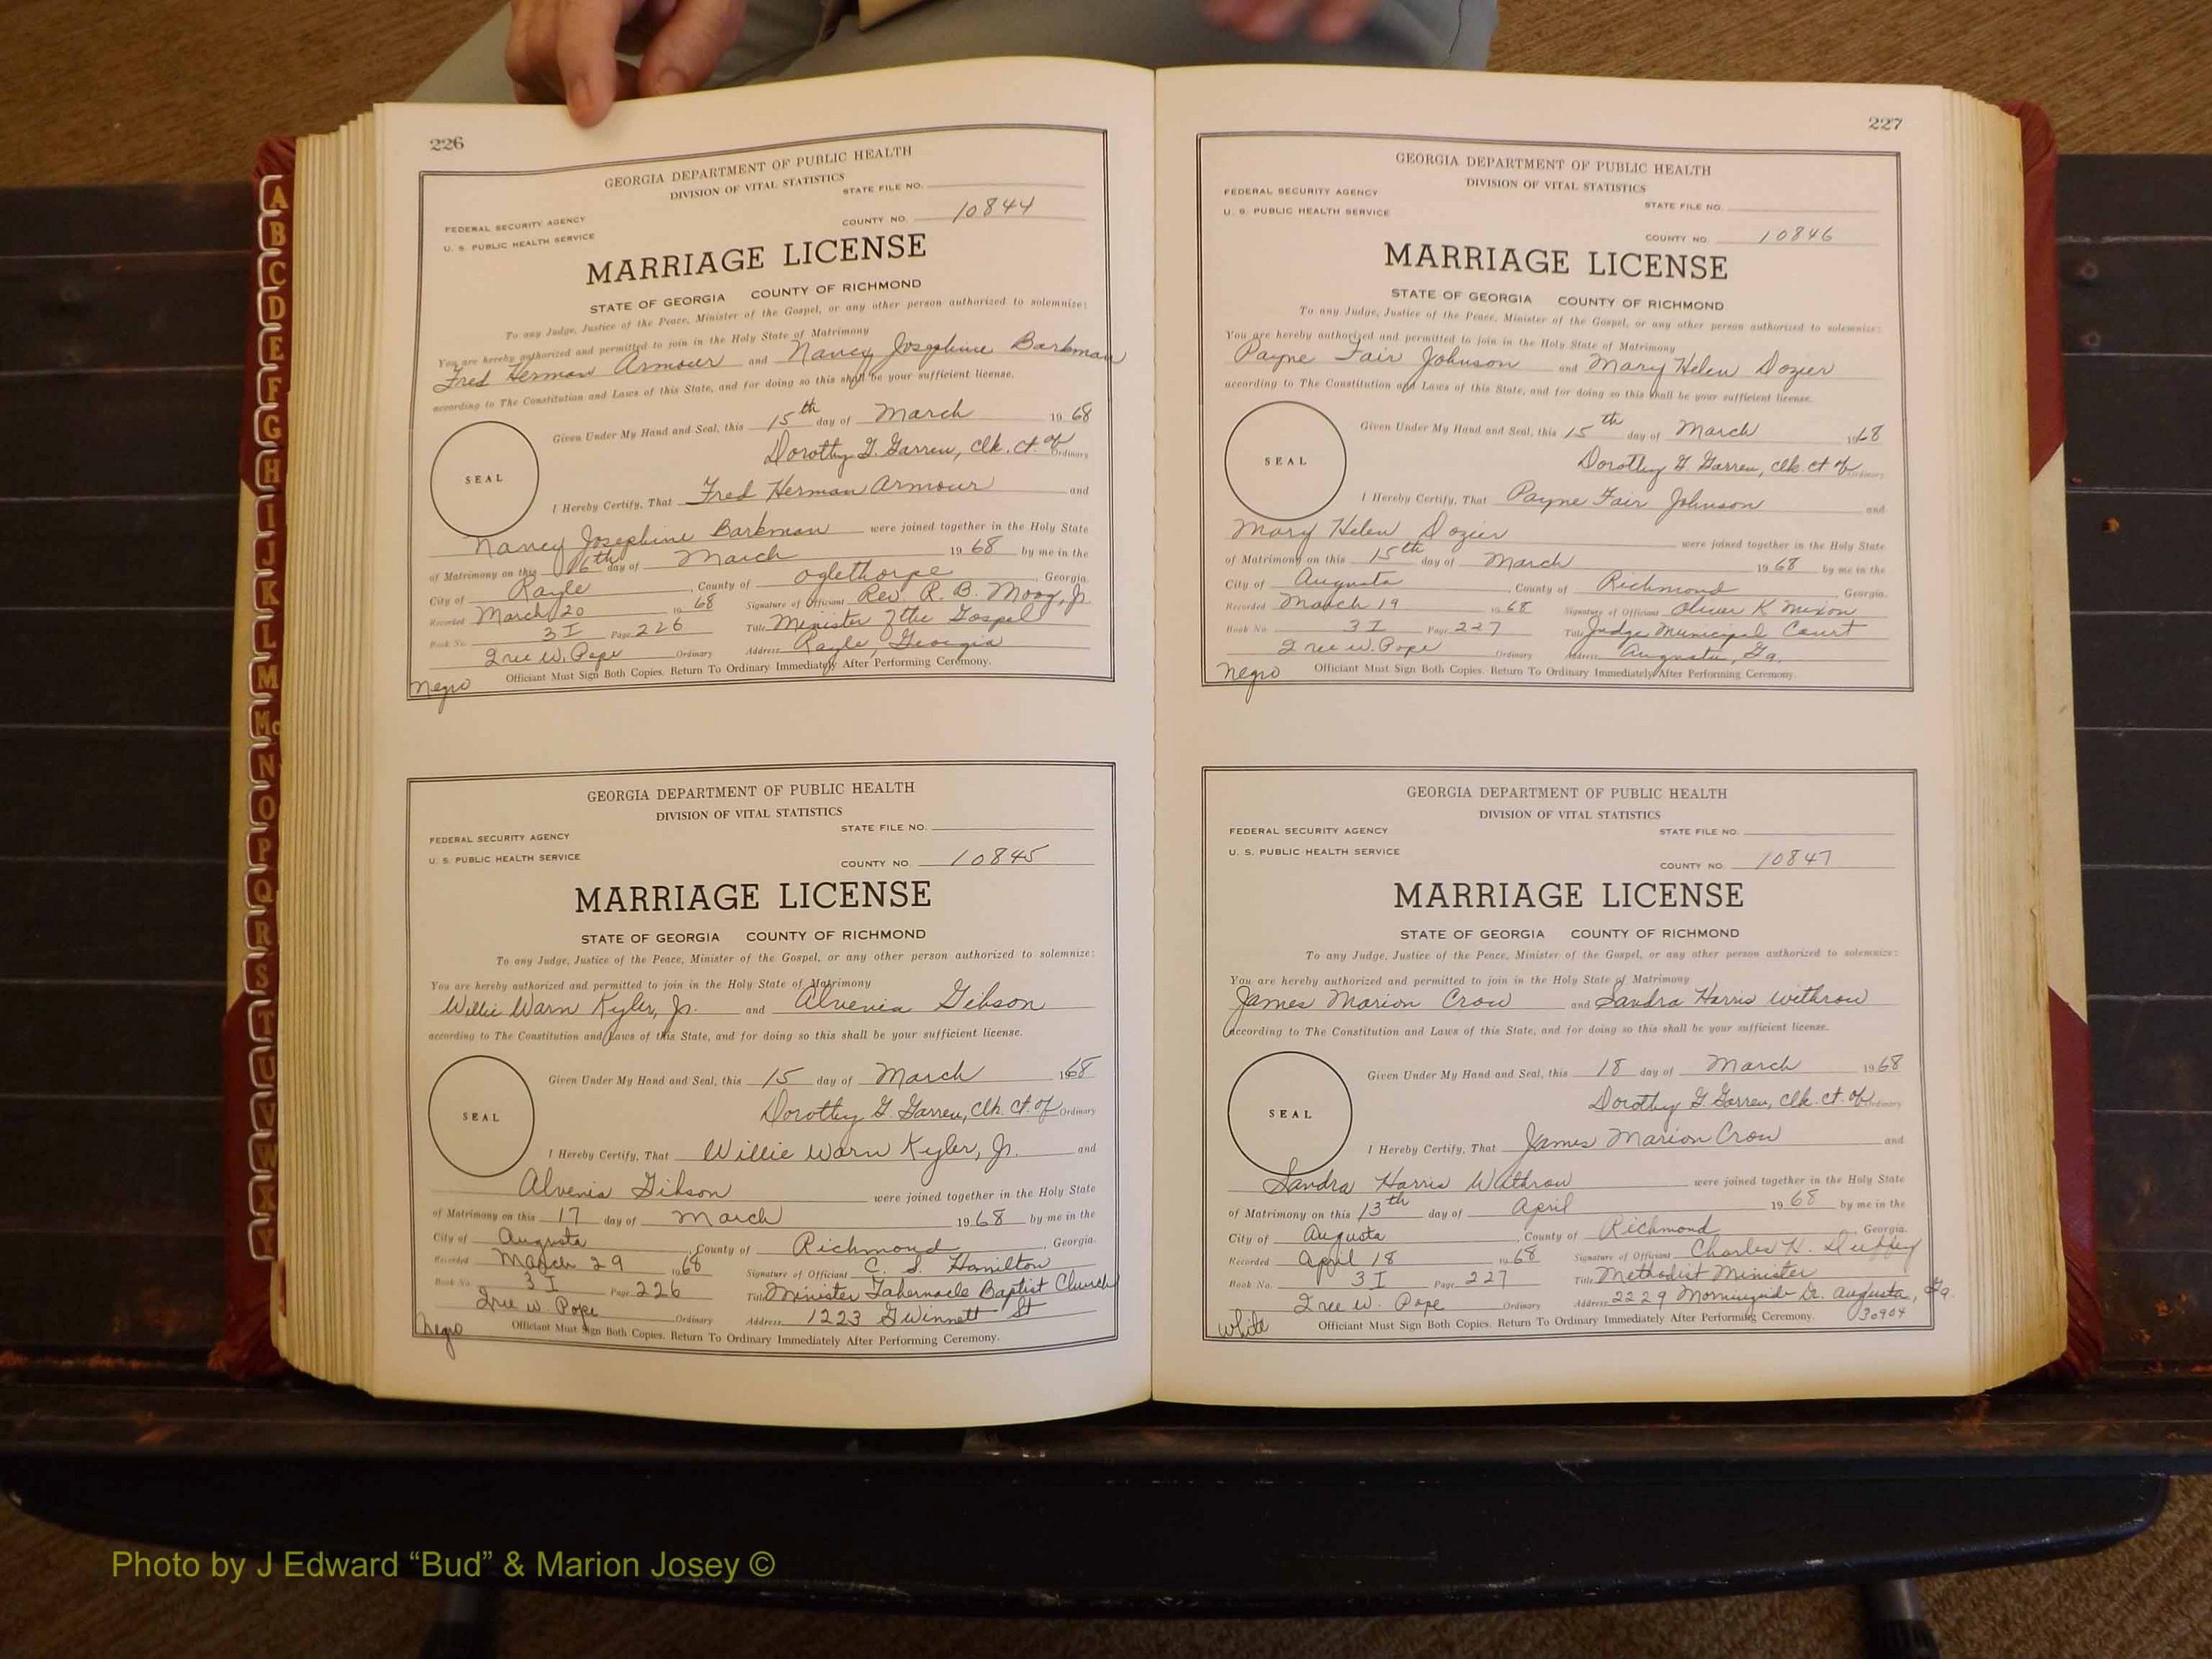 226
GEORGIA DEPARTMENT OF PUBLIC HEALTH
DIVISION OF VITAL STATISTICS
STATE FILE NO.
FEDERAL SECURITY AGENCY
U. S. PUBLIC HEALTH SERVICE
COUNTY NO. 10844
MARRIAGE LICENSE
STATE OF GEORGIA COUNTY OF RICHMOND
To any Judge, Justice of the Peace, Minister of the Gospel, or any other person authorized to solemnize:
You are hereby authorized and permitted to join in the Holy State of Matrimony
Fred Herman Armour and Nancy Josephine Barkman
according to The Constitution and Laws of this State, and for doing so this shall be your sufficient license.
Given Under My Hand and Seal, this 15th day of March 1968
Dorothy G. Garren, Clk. Ct. of Ordinary
SEAL
I Hereby Certify, That Fred Herman Armour and
Nancy Josephine Barkman were joined together in the Holy State
of Matrimony on this 16th day of March 1968 by me in the
City of Rayle, County of Oglethorpe, Georgia.
Recorded March 20 1968 Signature of Officiant Rev. R. B. Moog, Jr
Book No. 3 I Page 226 Title Minister of the Gospel
W. Pope Ordinary Address Rayle, Georgia
Negro Officiant Must Sign Both Copies. Return To Ordinary Immediately After Performing Ceremony.
GEORGIA DEPARTMENT OF PUBLIC HEALTH
DIVISION OF VITAL STATISTICS
STATE FILE NO.
FEDERAL SECURITY AGENCY
U. S. PUBLIC HEALTH SERVICE
COUNTY NO. 10845
MARRIAGE LICENSE
STATE OF GEORGIA COUNTY OF RICHMOND
To any Judge, Justice of the Peace, Minister of the Gospel, or any other person authorized to solemnize:
You are hereby authorized and permitted to join in the Holy State of Matrimony
Willie Warn Kyler, Jr. and Alvenia Gibson
according to The Constitution and Laws of this State, and for doing so this shall be your sufficient license.
Given Under My Hand and Seal, this 15 day of March 1968
Dorothy G. Garren, Clk. Ct. of Ordinary
SEAL
I Hereby Certify, That Willie Warn Kyler, Jr. and
Alvenia Gibson were joined together in the Holy State
of Matrimony on this 17 day of March 1968 by me in the
City of Augusta, County of Richmond, Georgia.
Recorded March 29 1968 Signature of Officiant C. S. Hamilton
Book No. 3 I Page 226 Title Minister Tabernacle Baptist Church
W. Pope Ordinary Address 1223 Gwinnett St
Negro Officiant Must Sign Both Copies. Return To Ordinary Immediately After Performing Ceremony.
227
GEORGIA DEPARTMENT OF PUBLIC HEALTH
DIVISION OF VITAL STATISTICS
FEDERAL SECURITY AGENCY
U. S. PUBLIC HEALTH SERVICE
STATE FILE NO.
COUNTY NO. 10846
MARRIAGE LICENSE
STATE OF GEORGIA COUNTY OF RICHMOND
To any Judge, Justice of the Peace, Minister of the Gospel, or any other person authorized to solemnize:
You are hereby authorized and permitted to join in the Holy State of Matrimony
Payne Fair Johnson and Mary Helen Dozier
according to The Constitution and Laws of this State, and for doing so this shall be your sufficient license.
Given Under My Hand and Seal, this 15th day of March 1968
Dorothy G. Garren, Clk. Ct of Ordinary
SEAL
I Hereby Certify, That Payne Fair Johnson and
Mary Helen Dozier were joined together in the Holy State
of Matrimony on this 15th day of March 1968 by me in the
City of Augusta, County of Richmond, Georgia.
Recorded March 19 1968 Signature of Officiant Oliver K Mixon
Book No. 3 I Page 227 Title Judge Municipal Court
W. Pope Ordinary Address Augusta, Ga.
Negro Officiant Must Sign Both Copies. Return To Ordinary Immediately After Performing Ceremony.
GEORGIA DEPARTMENT OF PUBLIC HEALTH
DIVISION OF VITAL STATISTICS
FEDERAL SECURITY AGENCY
STATE FILE NO.
U. S. PUBLIC HEALTH SERVICE
COUNTY NO. 10847
MARRIAGE LICENSE
STATE OF GEORGIA COUNTY OF RICHMOND
To any Judge, Justice of the Peace, Minister of the Gospel, or any other person authorized to solemnize:
You are hereby authorized and permitted to join in the Holy State of Matrimony
James Marion Crow and Sandra Harris Withrow
according to The Constitution and Laws of this State, and for doing so this shall be your sufficient license.
Given Under My Hand and Seal, this 18 day of March 1968
Dorothy G. Garren, Clk. Ct. of Ordinary
SEAL
I Hereby Certify, That James Marion Crow and
Sandra Harris Withrow were joined together in the Holy State
of Matrimony on this 13th day of April 1968 by me in the
City of Augusta, County of Richmond, Georgia.
Recorded April 18 1968 Signature of Officiant Charles
Book No. 3 I Page 227 Title Methodist Minister
W. Pope Ordinary Address 2229 Morningside Dr. Augusta, Ga.
30904
White Officiant Must Sign Both Copies. Return To Ordinary Immediately After Performing Ceremony.
A
B
C
D
E
F
G
H
I
J
K
L
M
Mc
N
O
P
Q
R
S
T
U
V
W
X
Y
Photo by J Edward “Bud” & Marion Josey ©